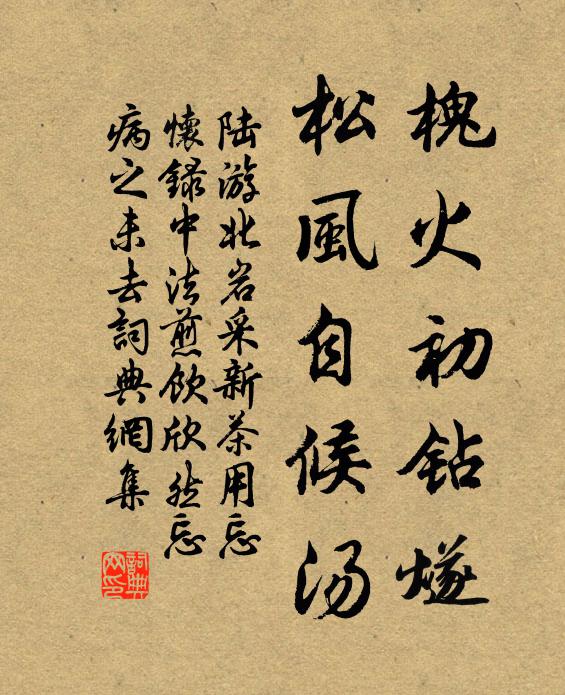 槐火初钻燧
松風自候湯
陆游北岩采新茶用忘
懷録中法煎飲欣然忘
病之未去詞典網集
詞典网印